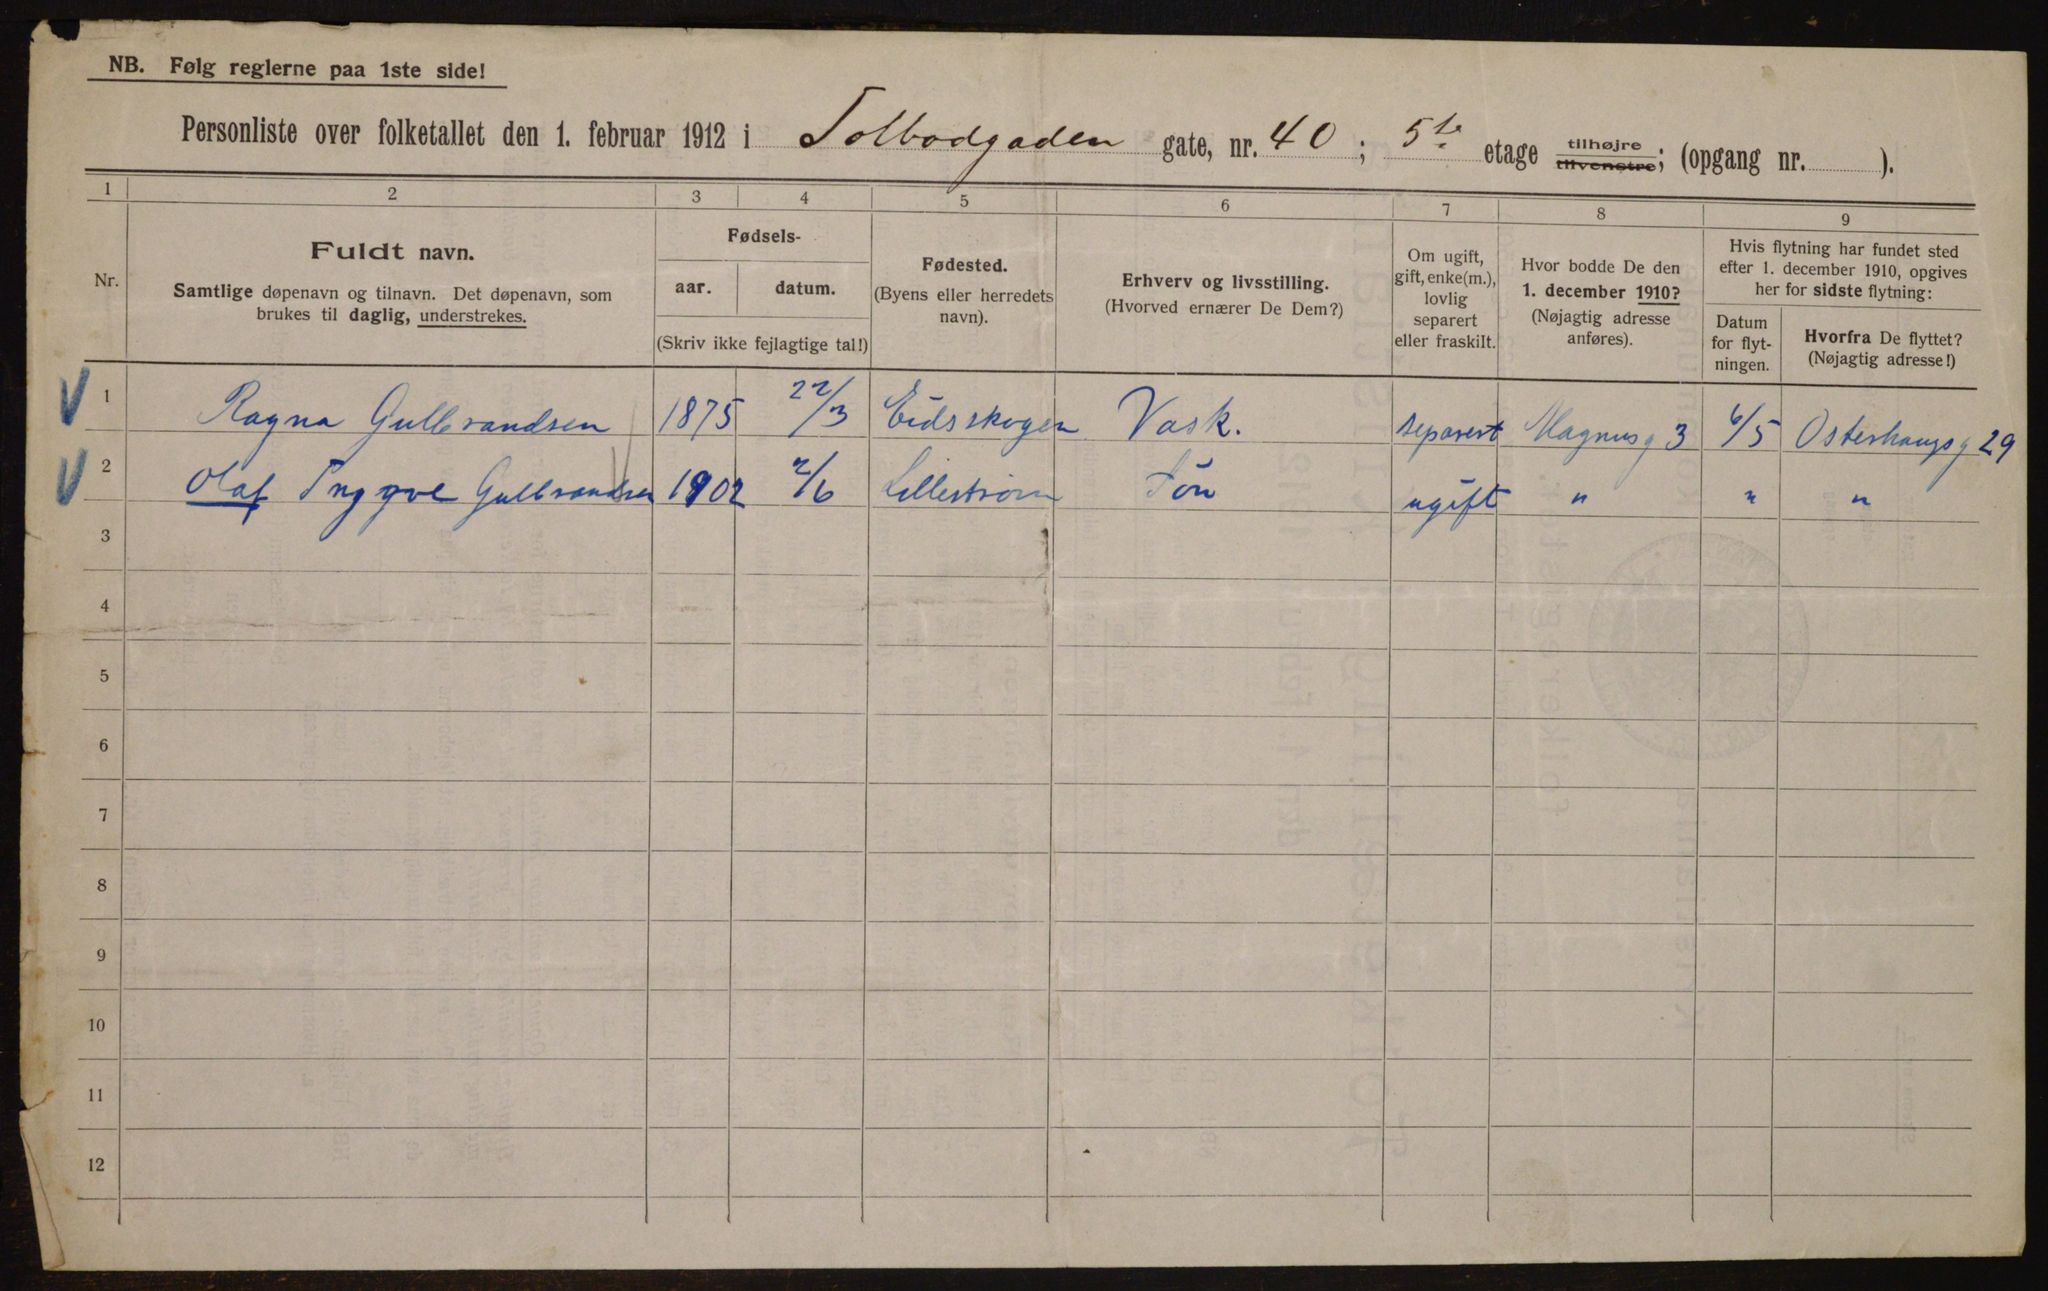 NB. Følg reglerne paa 1ste side!
Personliste over folketallet den 1. februar 1912 i Tolbodgaden gate, nr. 40; 5te etage tilhøjre tilvenstre; (opgang nr. ).
1 2 3 4 5 6 7 8 9
Nr.
Fuldt navn.
Samtlige døpenavn og tilnavn. Det døpenavn, som
brukes til daglig, understrekes.
Fødsels-
aar. datum.
(Skriv ikke fejlagtige tal!)
Fødested.
(Byens eller herredets
navn).
Erhverv og livsstilling.
(Hvorved ernærer De Dem?)
Om ugift,
gift, enke(m.),
lovlig
separert
eller fraskilt.
Hvor bodde De den
1. december 1910?
(Nøjagtig adresse
anføres).
Hvis flytning har fundet sted
efter 1. december 1910, opgives
her for sidste flytning:
Datum
for flyt-
ningen.
Hvorfra De flyttet?
(Nøjagtig adresse!)
1 Ragna Gulbrandsen 1875 22/3 Eidsskogen Vask. separert Magnusg 3 6/5 Osterhausg 29
2 Olaf Tryggve Gulbrandsen 1902 2/6 Lillestrøm Søn ugift " " "
3
4
5
6
7
8
9
10
11
12